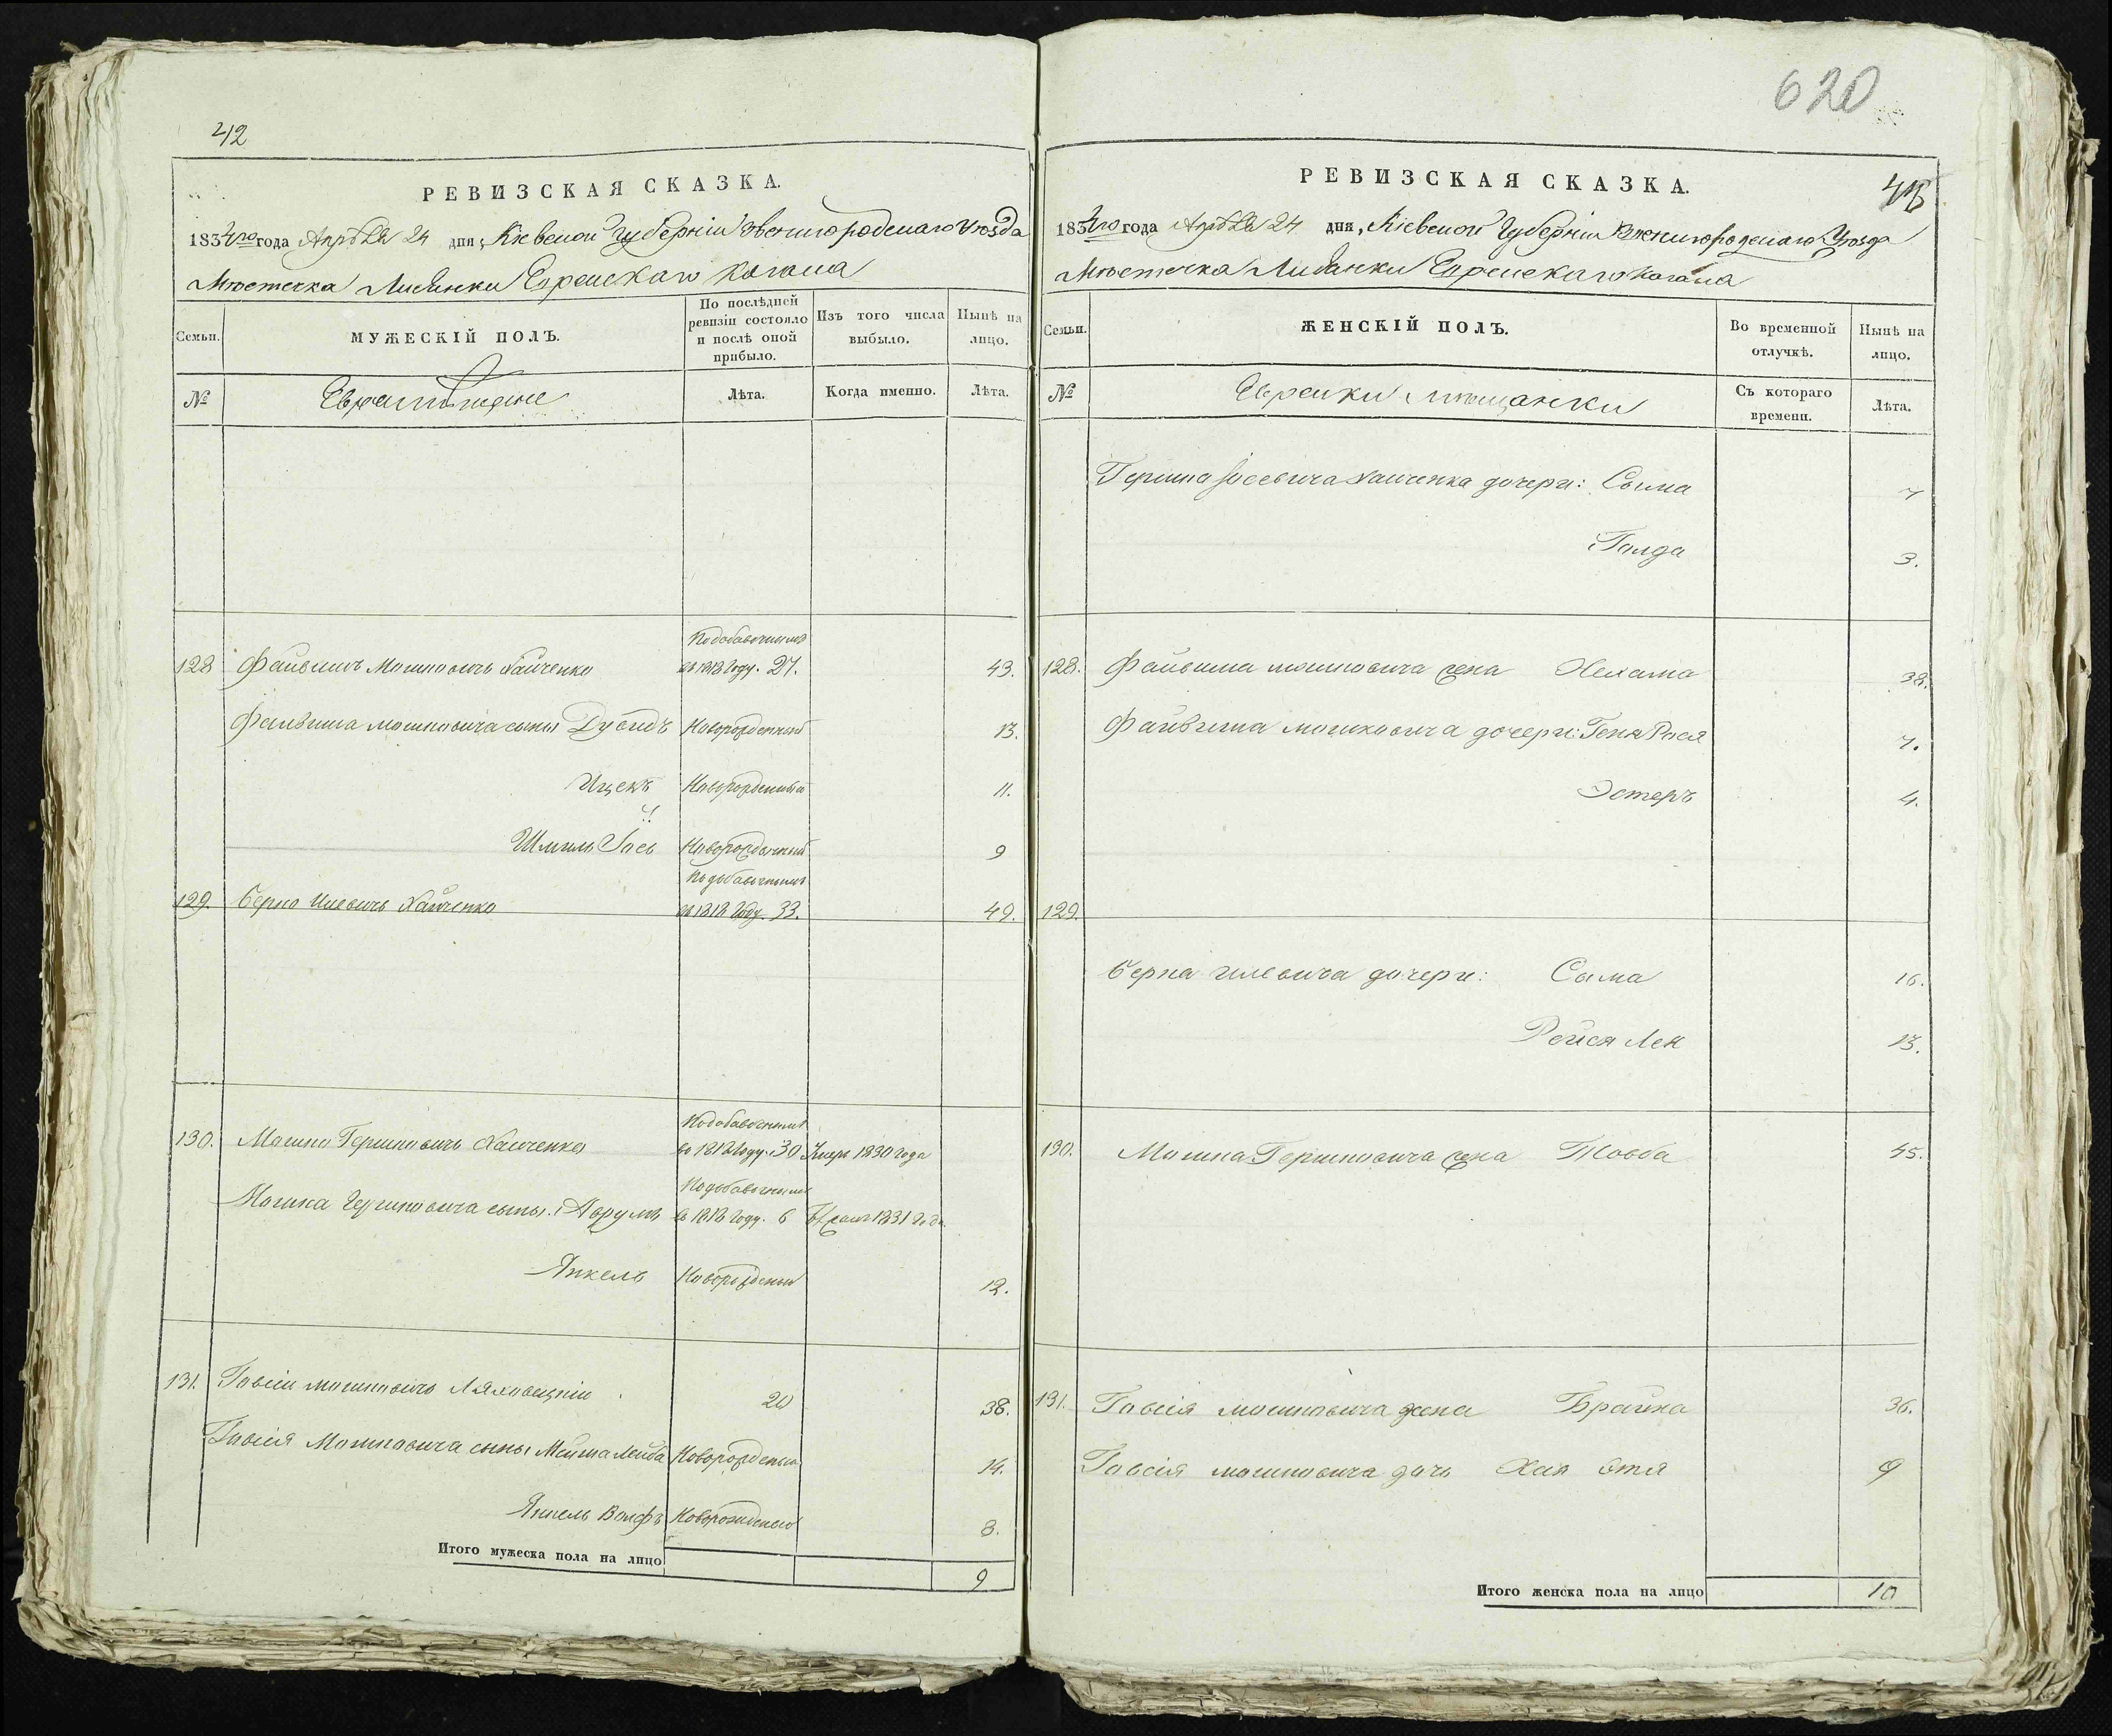 42
РЕВИЗСКАЯ СКАЗКА.
1834го года Апрѣля 24 дня, Кіевской Губерніи Звенигородскаго Уѣзда
Мѣстечка Лисянки Еврейскаго Кагала
Семьи.
МУЖЕСКІЙ ПОЛЪ.
По послѣдней ревизіи состояло и послѣ оной прибыло.
Изъ того числа выбыло.
Нынѣ на лицо.
№
Евреи Мѣщане
Лѣта.
Когда именно.
Лѣта.
128 Файвишъ Мошковичъ Хайченко
По добавочнымъ въ 1818 Году. 27.
43.
Файвиша Мошковича сыны Дувидъ Новорожденный 13.
Ицекъ Новорожденный 11.
Шмиль Іось Новорожденный 9
129. Берко Илевичъ Хайченко
По добавочнымъ въ 1818 Году. 33.
49.
130. Мошко Гершковичъ Хайченко
По добавочнымъ въ 1818 Году. 30 Умеръ 1830 Года
Мошка Гершковича сыны: Аврумъ
По добавочнымъ въ 1818 Году. 6 1831 Года
Янкель Новорожденый 12.
131. Гавсіи Мошковичъ Ляховецкіи 20 38.
Гавсія Мошковича сыны Лейба Новорожденый 14.
Янкель Волфъ Новорожденый 8.
Итого мужеска пола на лицо 9
620
РЕВИЗСКАЯ СКАЗКА.
1834го года Апрѣля 24 дня, Кіевской Губерніи Звенигородскаго Уѣзда
Мѣстечка Лисянки Еврейскаго Кагала
Семьи.
ЖЕНСКІЙ ПОЛЪ.
Во временной отлучкѣ.
Нынѣ на лицо.
№
Еврейки Мѣщанки
Съ котораго времени.
Лѣта.
Гершка Іосевича Хайченка дочери: Сыма 7
Голда 3.
128. Файвиша Мошковича жена 38.
Файвиша Мошковича дочери: Геня Рася 7.
Эстеръ 4.
129.
Берка Илевича дочери: Сыма 16.
Рейся Лея 13.
130. Мошка Гершковича жена Товба 45.
131. Гавсія Мошковича жена Брайна 36.
Гавсія Мошковича дочь Хая Етя 9
Итого женска пола на лицо 10